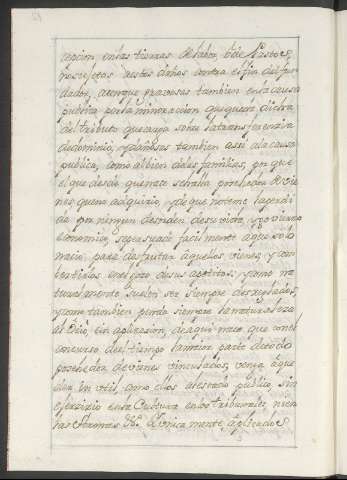 cepcion en las tierras de labor, ò de Pastos,
no sujetas a estos daños contra el fin del fun
dador, aunque gravosas tambien en la causa
publica por la minoracion que queda dicha
del tributo que cargo sobre la transferencia
de dominio, y dañosas tambien assi a la causa
publica, como al bien de las familias, por que
el que desde que nace se halla poseedor de vie
nes que no adquirio, y de que no teme la perdi
da por ningun desorden de su vida, y govierno
economico, se persuade facilmente à que solo
naciò para disfrutar aquellos vienes, y con
vertirlos en el logro de sus apetitos: y como na
turalmente suelen ser siempre desreglados,
y como tambien pende siempre la naturaleza
al Ocio, sin aplicacion, de aqui nace que con el
concurso del tiempo la maior parte de todo
poseedor de vienes vinculados, venga à que
dar inutil como ellos al estado publico, sin
exercicio en la Cultura en los tribunales, ni en
las Armas &c. Unicamente aplicados